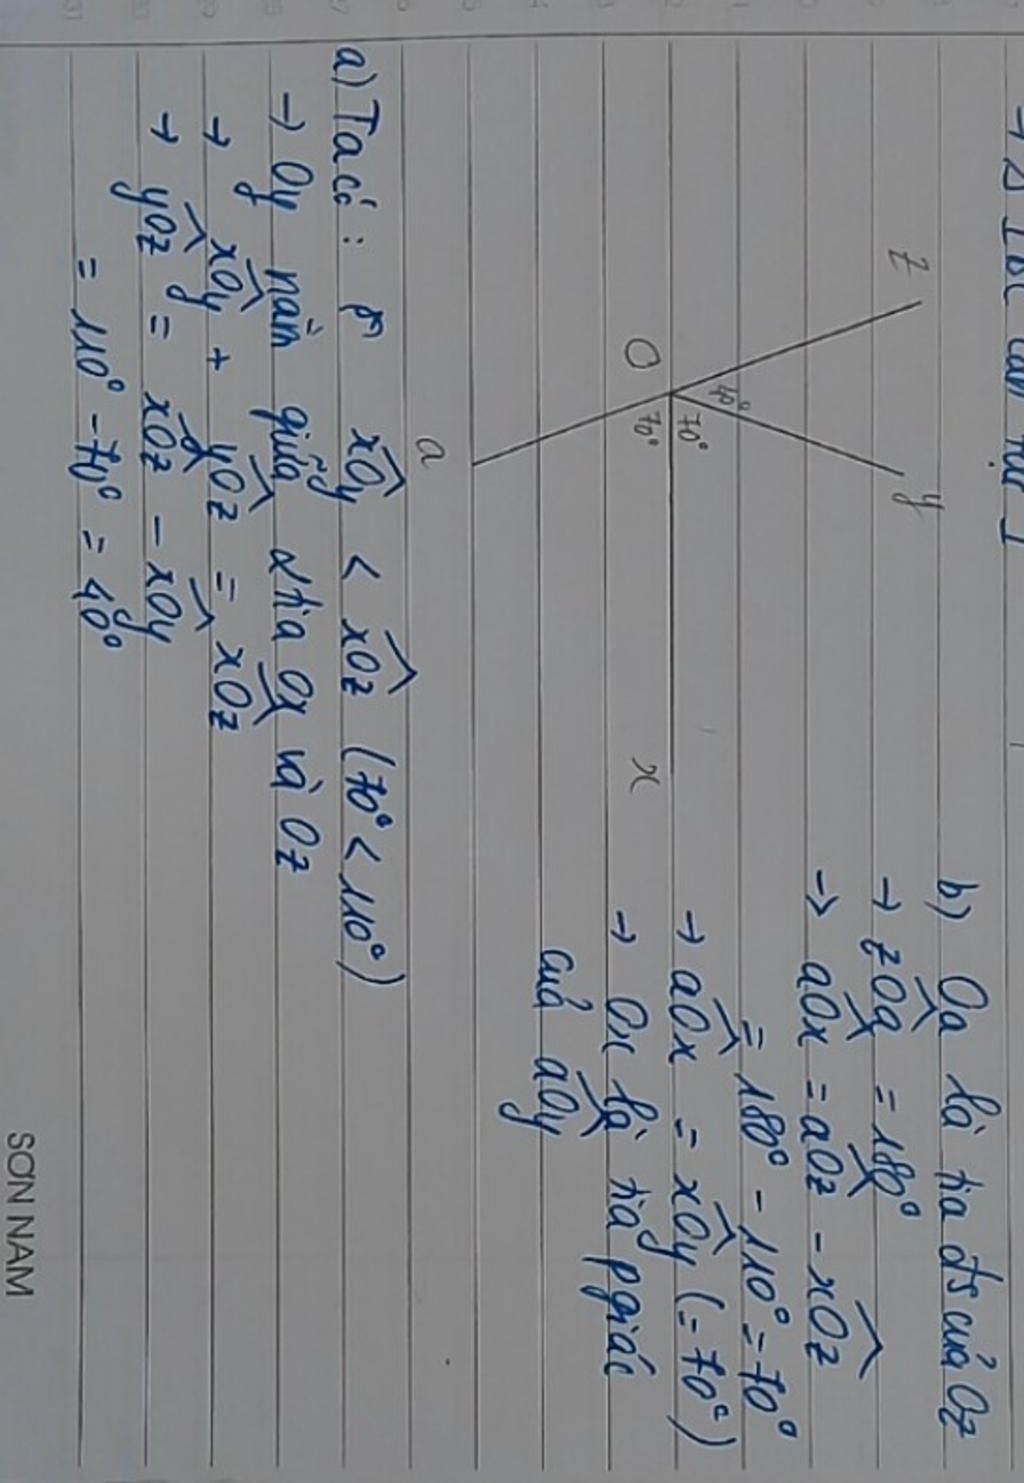 → Δ IBC cân tại I
z
y
40°
O
70°
70°
x
a
a) Ta có: xOy < xOz (70° < 110°)
→ Oy nằm giữa 2 tia Ox và Oz
→ xOy + yOz = xOz
→ yOz = xOz - xOy
= 110° - 70° = 40°
b) Oa là tia đs của Oz
→ zOa = 180°
→ aOx = aOz - xOz
= 180° - 110° = 70°
→ aOx = xOy (= 70°)
→ Ox là tia pgiác
của aOy
SƠN NAM